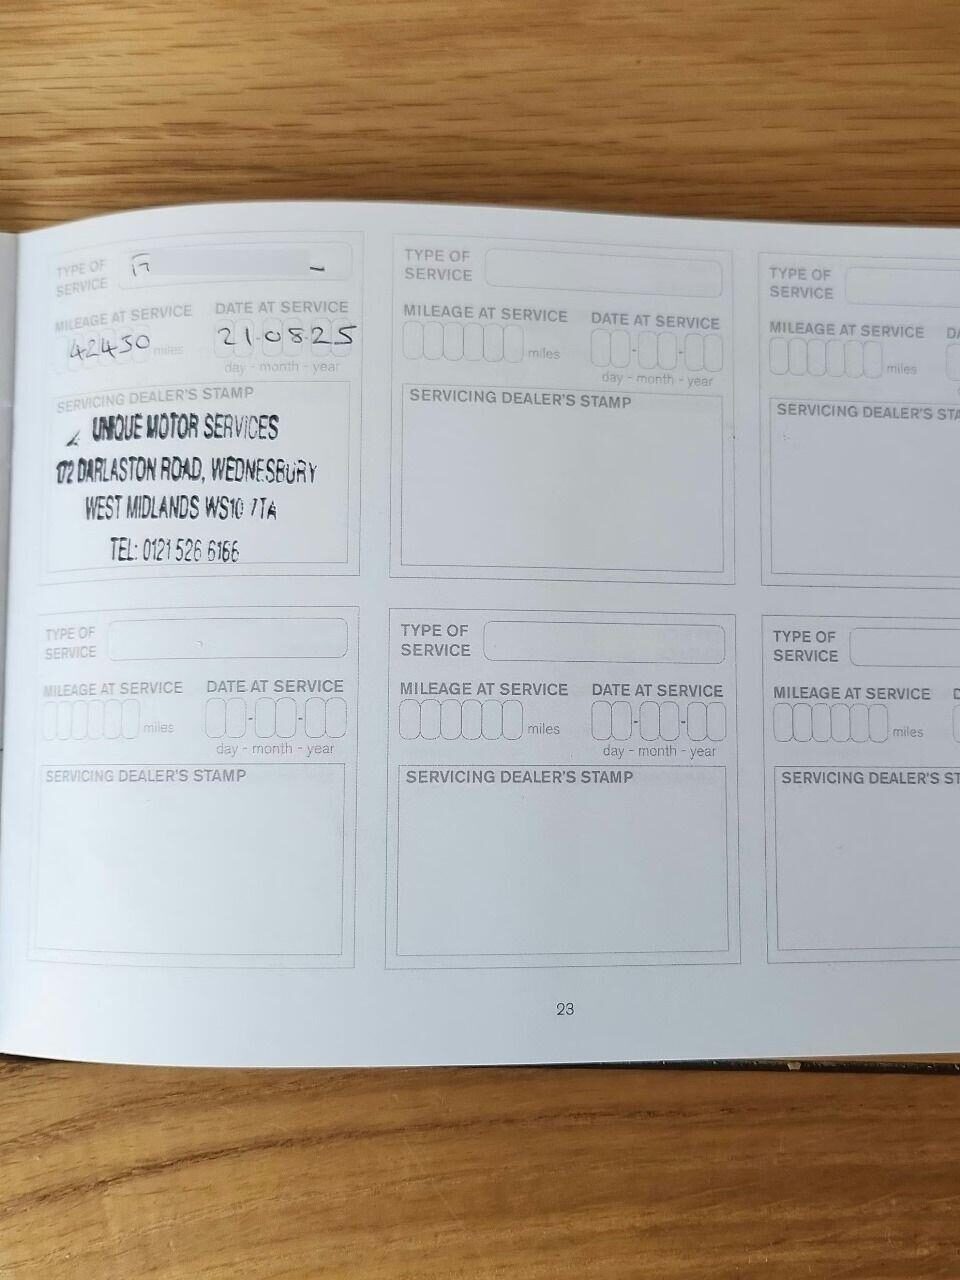 TYPE OF
SERVICE
MILEAGE AT SERVICE DATE AT SERVICE
42450 miles 21-08-25
day - month - year
SERVICING DEALER'S STAMP
UNIQUE MOTOR SERVICES
172 DARLASTON ROAD, WEDNESBURY
WEST MIDLANDS WS10 7TA
TEL: 0121 526 6166
TYPE OF
SERVICE
MILEAGE AT SERVICE DATE AT SERVICE
miles
day - month - year
SERVICING DEALER'S STAMP
TYPE OF
SERVICE
MILEAGE AT SERVICE
miles
SERVICING DEALER'S STA
TYPE OF
SERVICE
MILEAGE AT SERVICE DATE AT SERVICE
miles
day - month - year
SERVICING DEALER'S STAMP
TYPE OF
SERVICE
MILEAGE AT SERVICE DATE AT SERVICE
miles
day - month - year
SERVICING DEALER'S STAMP
TYPE OF
SERVICE
MILEAGE AT SERVICE D
miles
SERVICING DEALER'S ST
23